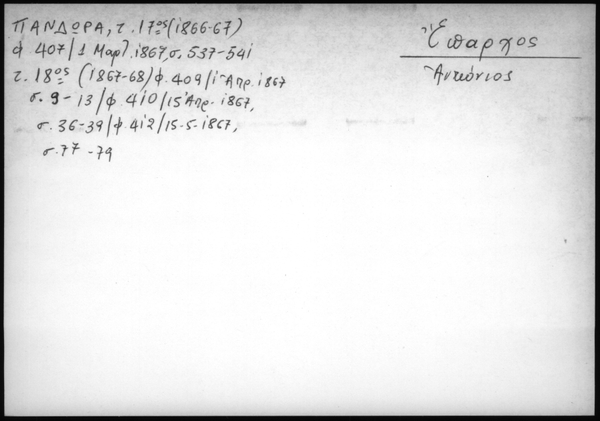 ΠΑΝΔΩΡΑ, τ. 17ος (1866-67)
φ 407/1 Μαρτ. 1867, σ. 537-541
τ. 18ος (1867-68) φ. 409/1 Απρ. 1867
σ. 9-13/φ. 410/15 Απρ. 1867,
σ. 36-39/φ. 412/15-5-1867,
σ. 77-79
Ἔπαρχος
Ἀντώνιος